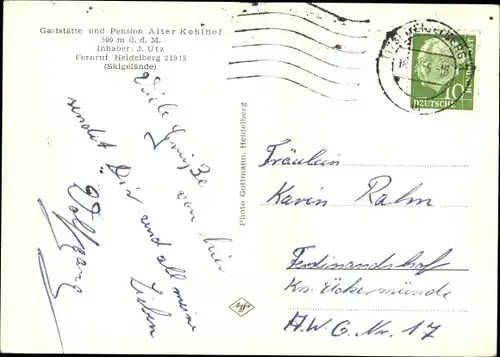 Gaststätte und Pension Alter Kohlhof
500 m ü. d. M.
Inhaber: J. Utz
Fernruf Heidelberg 21915
(Skigelände)
Viele Grüße von hier
sendet Dir und all meine
Lieben
Wolfgang
Photo Gottmann, Heidelberg
HEIDELBERG
10
DEUTSCHE
Fräulein
Karin Rahm
Ferdinandshof
Krs. Ückermünde
A.W.G. Nr. 17